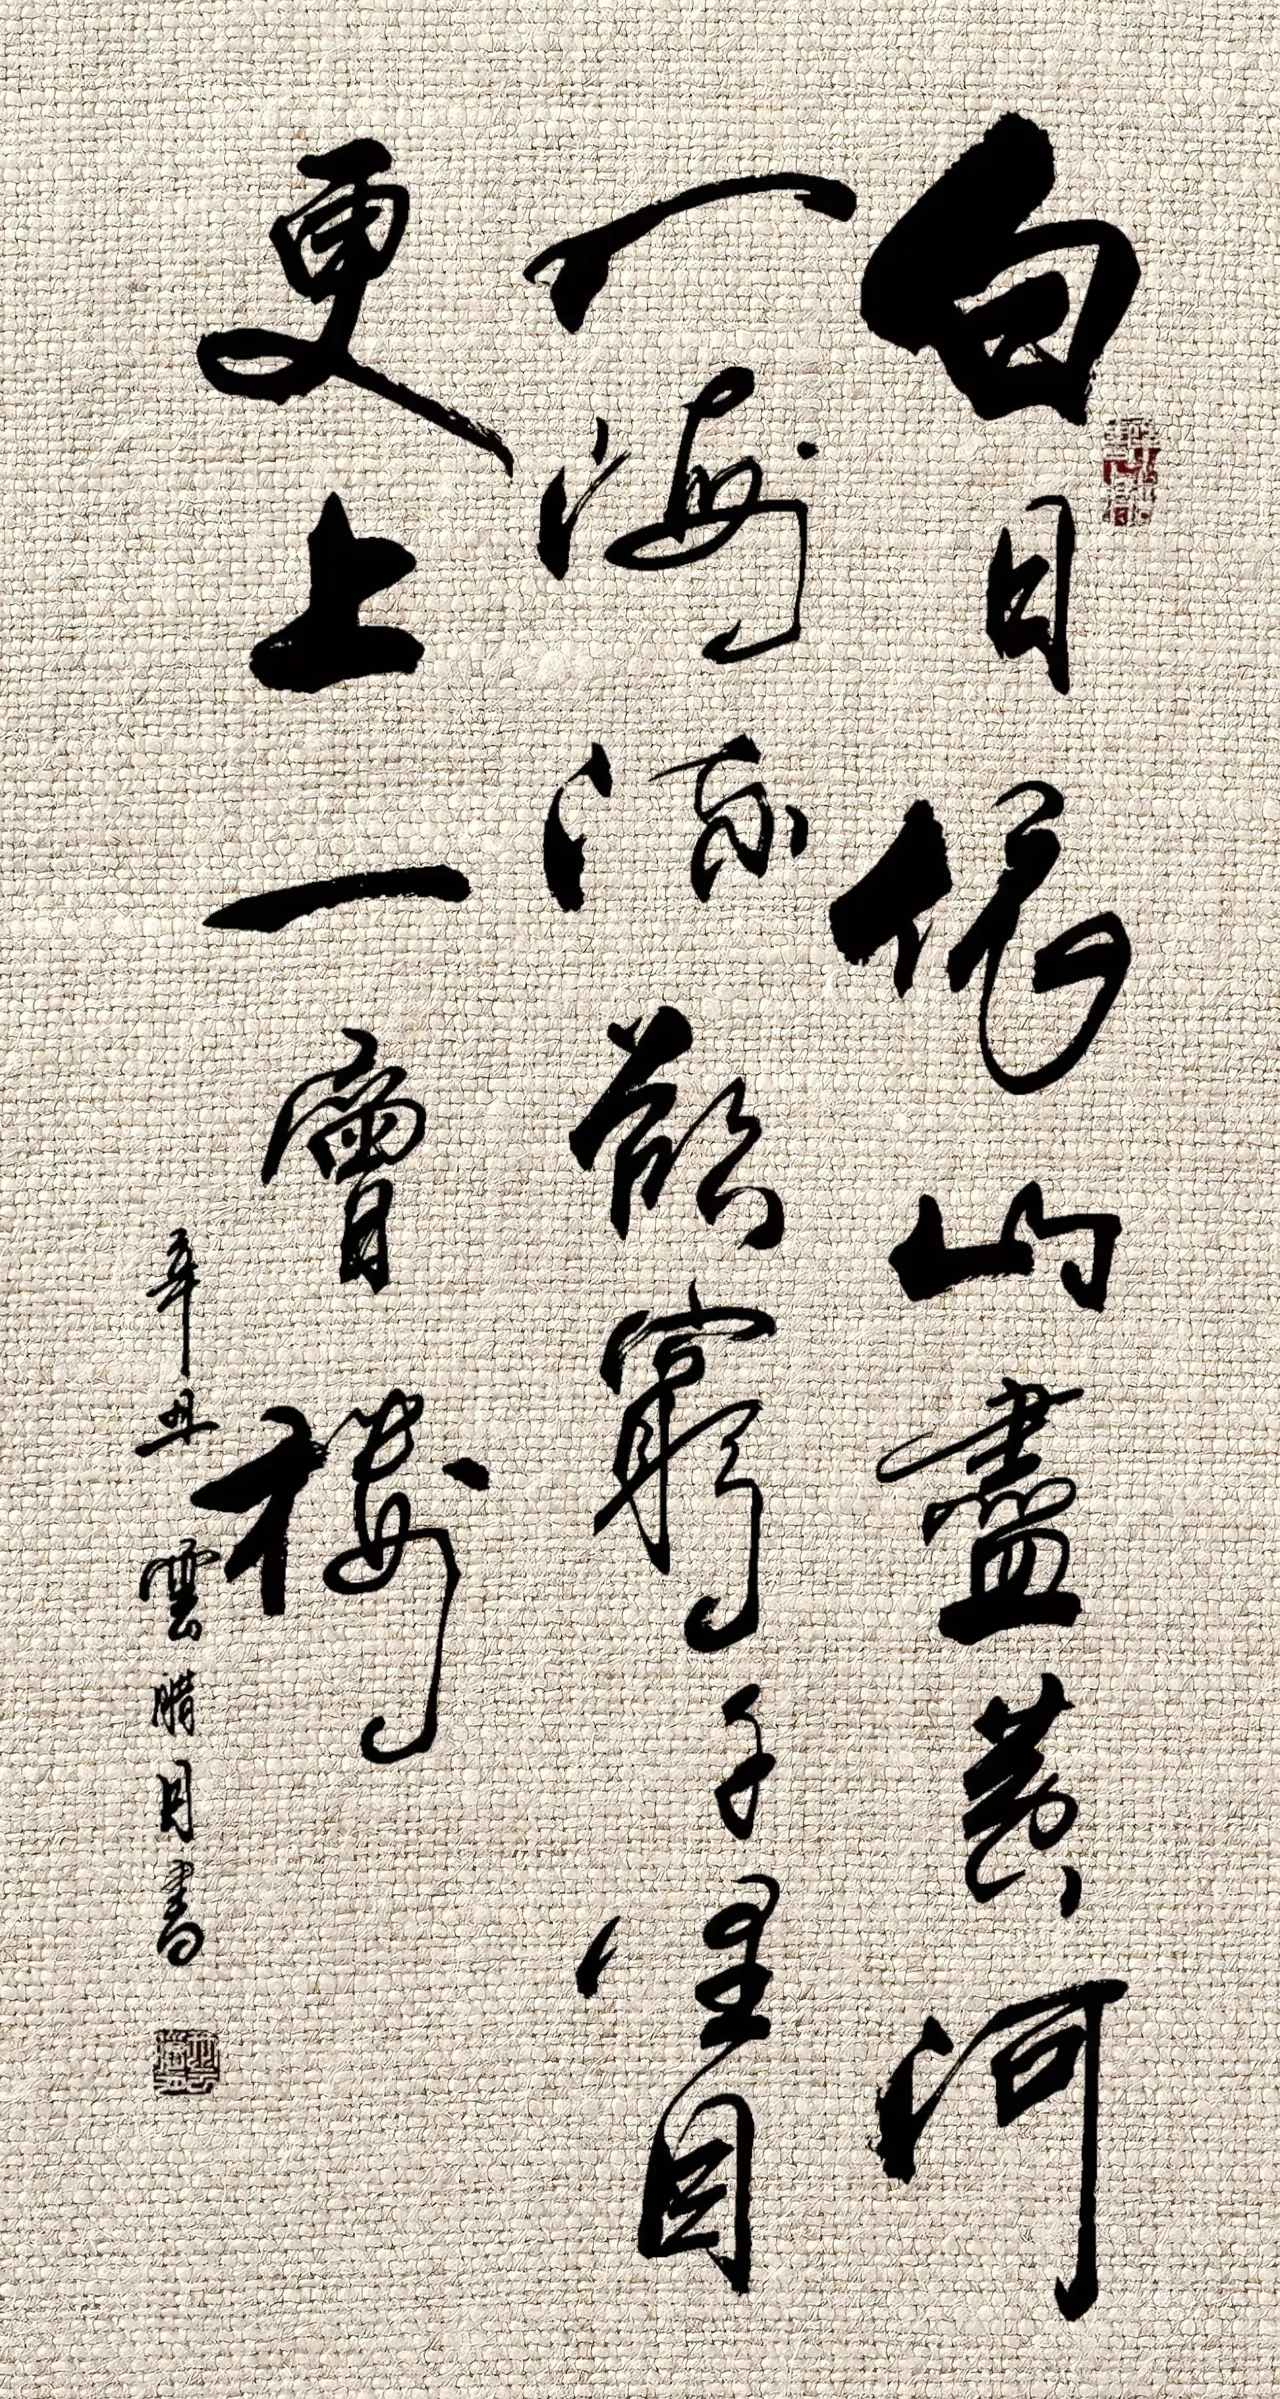 白日依山盡黃河
入海流欲窮千里目
更上一層樓
辛丑雲腊月書